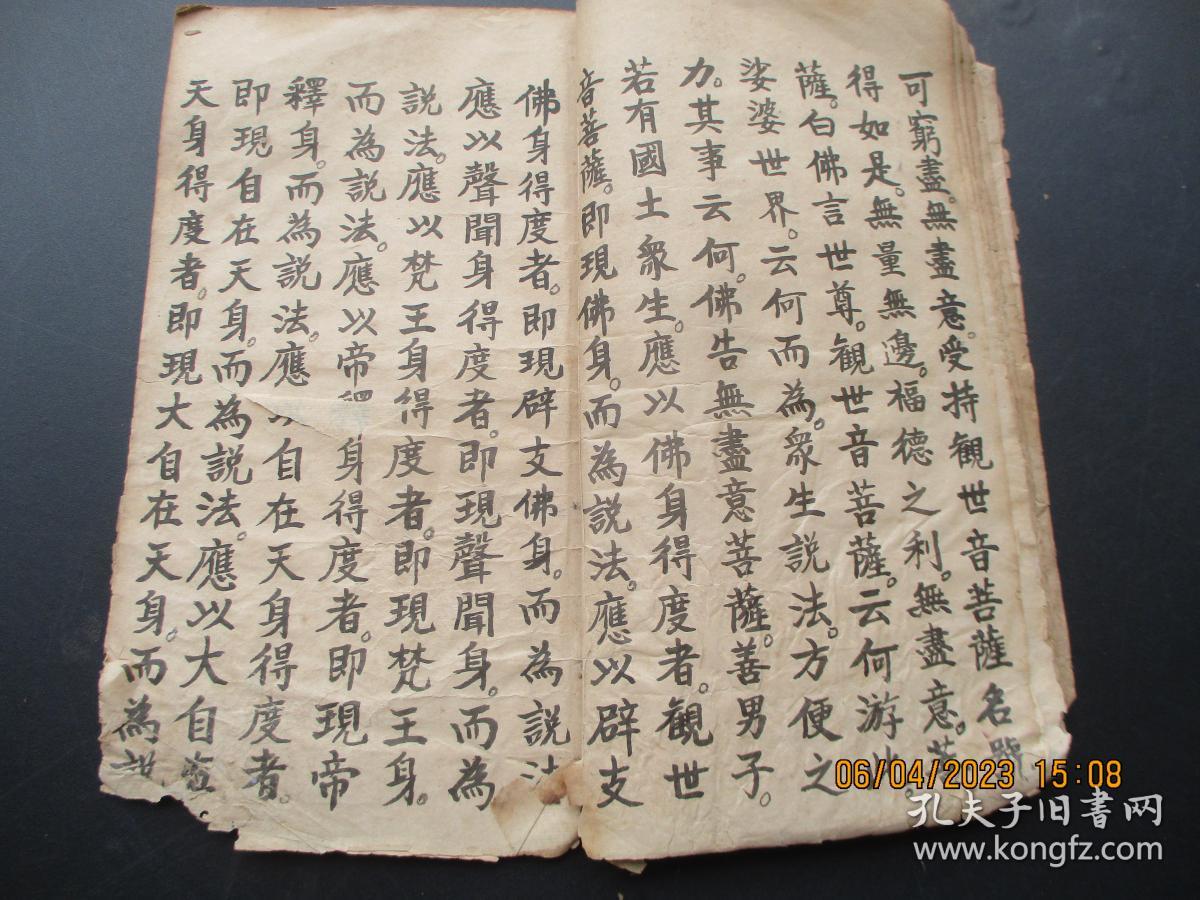 可窮盡。無盡意。受持觀世音菩薩名號
得如是。無量無邊。福德之利。無盡意。菩
薩。白佛言世尊。觀世音菩薩。云何游此。
娑婆世界。云何而為。衆生說法。方便之
力。其事云何。佛告無盡意菩薩。善男子。
若有國土衆生。應以佛身得度者。觀世
音菩薩。即現佛身。而為說法。應以辟支
佛身得度者。即現辟支佛身。而為說法
應以聲聞身得度者。即現聲聞身。而為
說法。應以梵王身得度者。即現梵王身。
而為說法。應以帝釋身得度者。即現帝
釋身。而為說法。應以自在天身得度者。
即現自在天身。而為說法。應以大自在
天身得度者。即現大自在天身。而為說
06/04/2023 15:08
孔夫子旧書网
www.kongfz.com